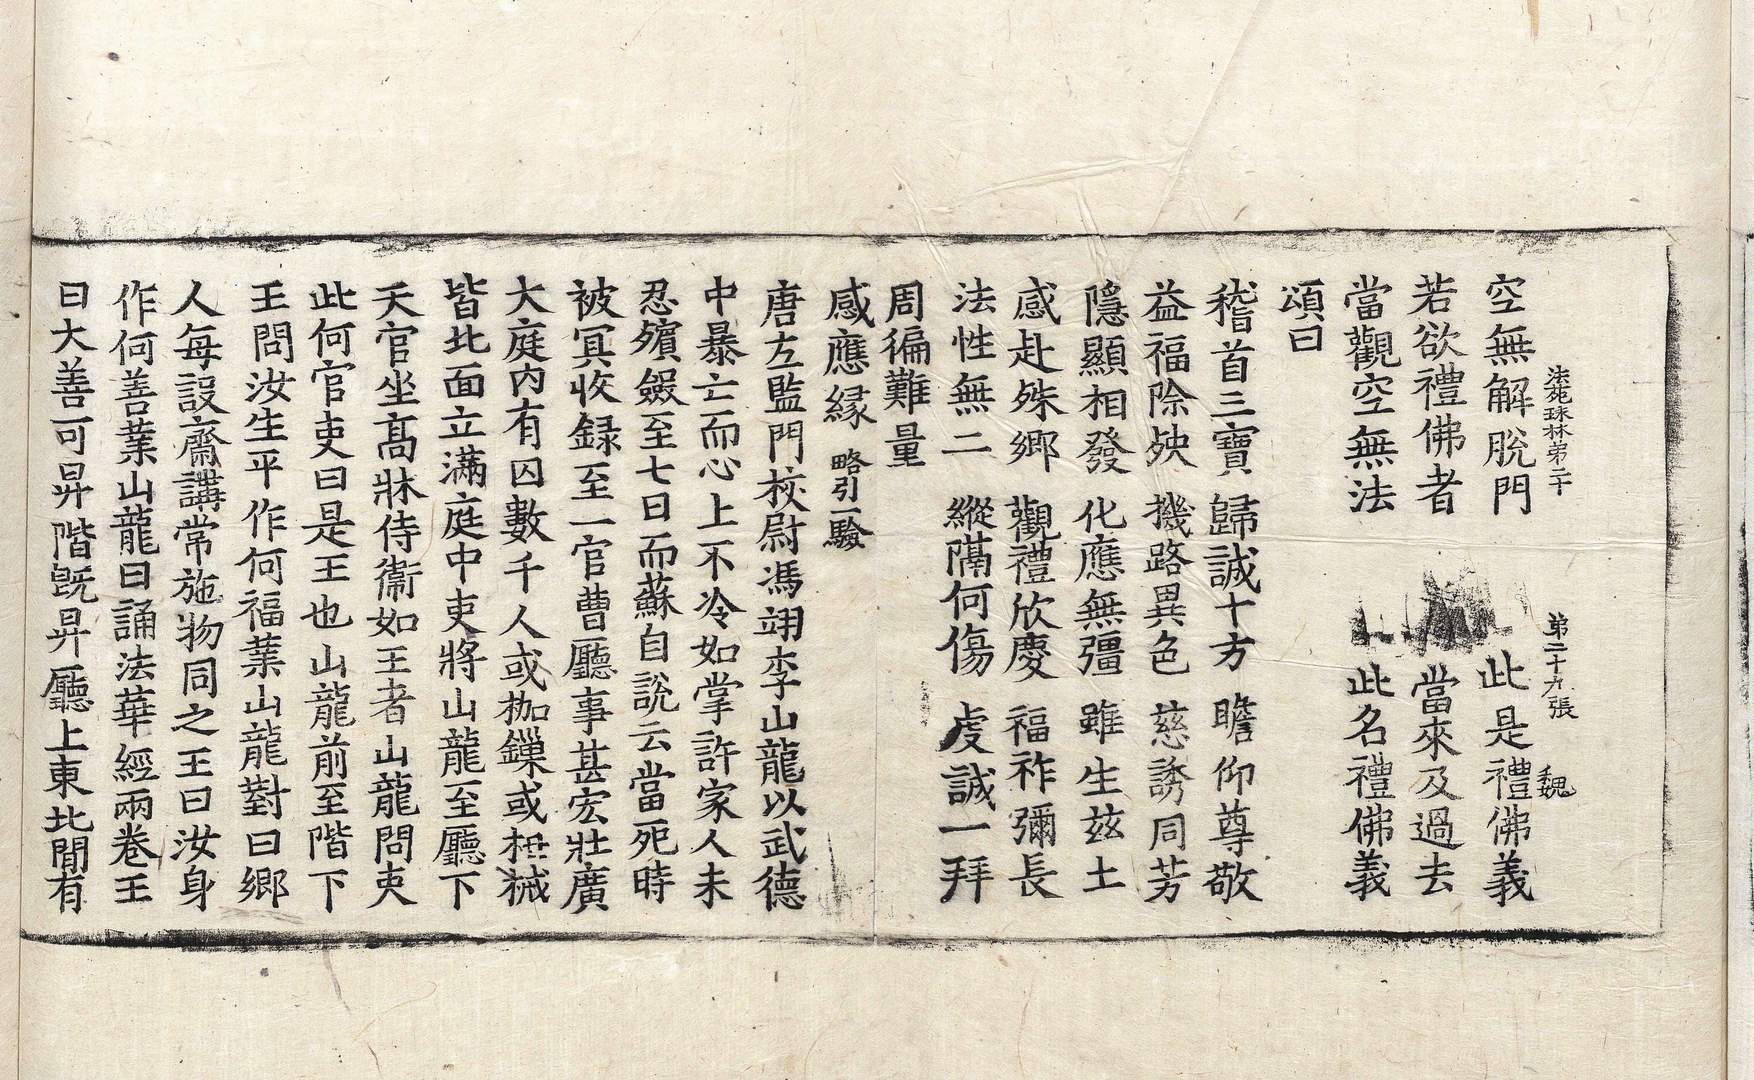 法苑珠林第二十　第二十九張　魏
空無解脫門　此是禮佛義
若欲禮佛者　當來及過去
當觀空無法　此名禮佛義
頌曰
稽首三寶　歸誠十方　瞻仰尊敬
益福除殃　機路異色　慈誘同芳
隱顯相發　化應無彊　雖生茲土
感赴殊鄉　觀禮欣慶　福祚彌長
法性無二　縱隔何傷　虔誠一拜
周徧難量
感應緣　略引一驗
唐左監門校尉馮翊李山龍以武德
中暴亡而心上不冷如掌許家人未
忍殯斂至七日而蘇自說云當死時
被冥收錄至一官曹廳事甚宏壯廣
大庭內有囚數千人或枷鏁或杻械
皆北面立滿庭中吏將山龍至廳下
天官坐高牀侍衞如王者山龍問吏
此何官吏曰是王也山龍前至階下
王問汝生平作何福業山龍對曰鄉
人每設齋講常施物同之王曰汝身
作何善業山龍曰誦法華經兩卷王
曰大善可昇階旣昇廳上東北間有